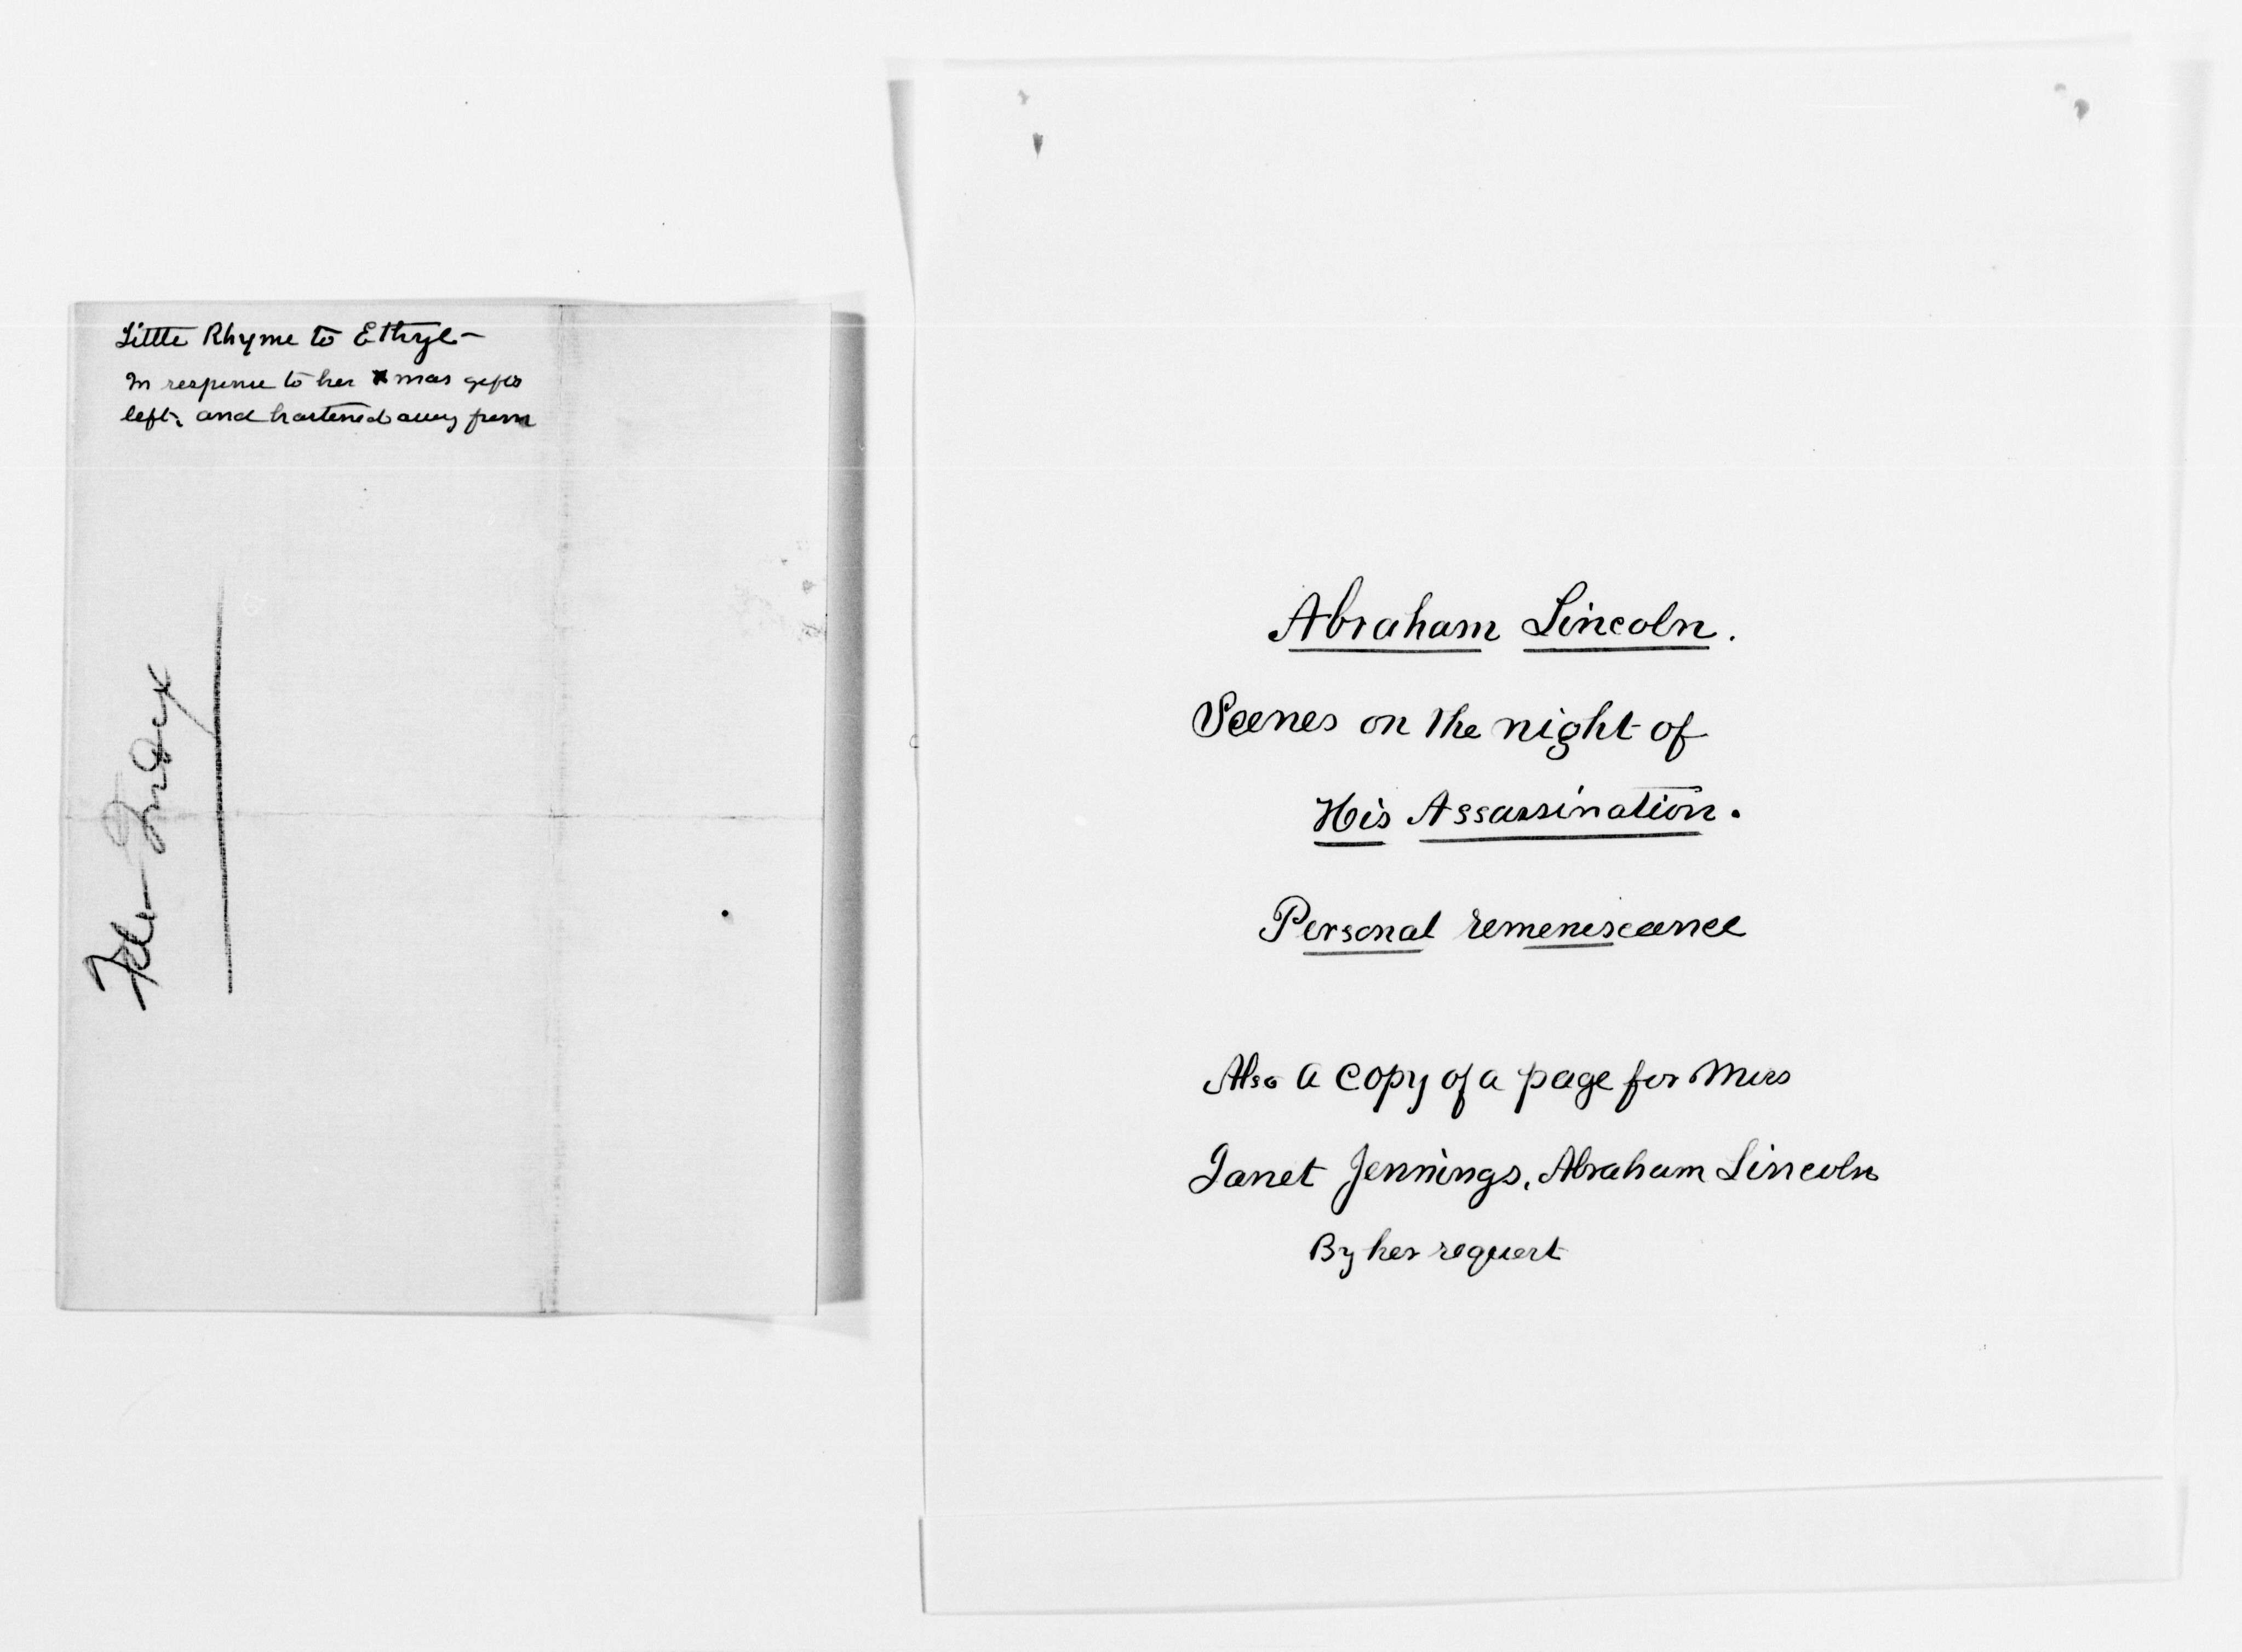 Little Rhyme to Ethyl—
In response to her Xmas gifts
left, and hastened away from
File Index
Abraham Lincoln.
Scenes on the night of
His Assassination.
Personal remeniscence
Also a copy of a page for Miss
Janet Jennings, Abraham Lincoln
By her request